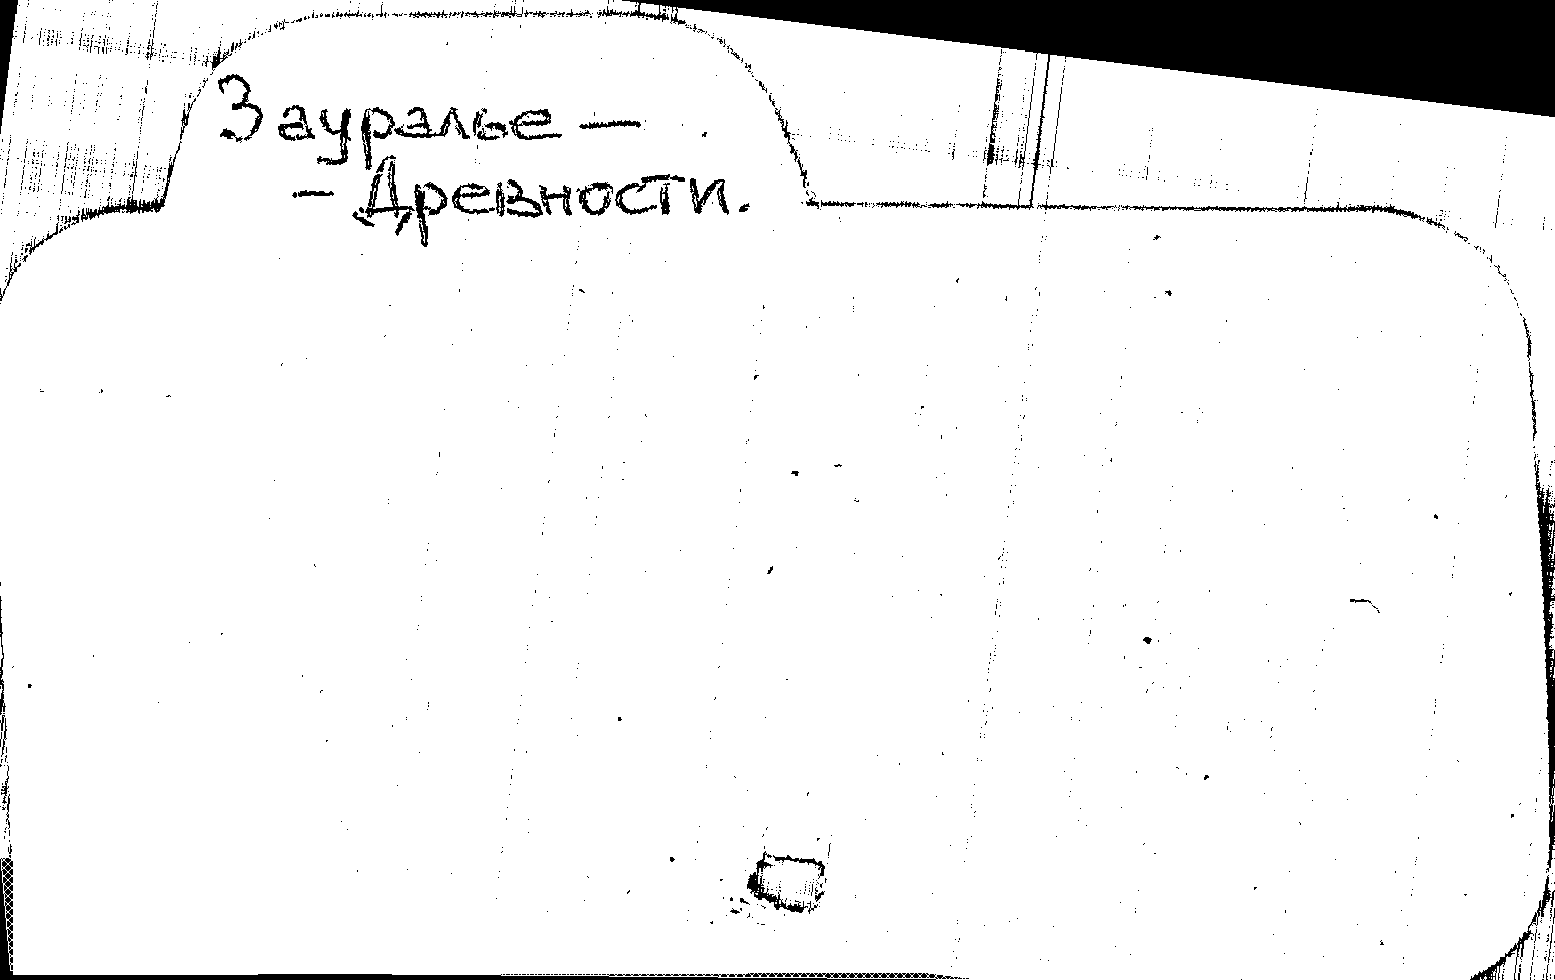 Зауралье —
- Древности.